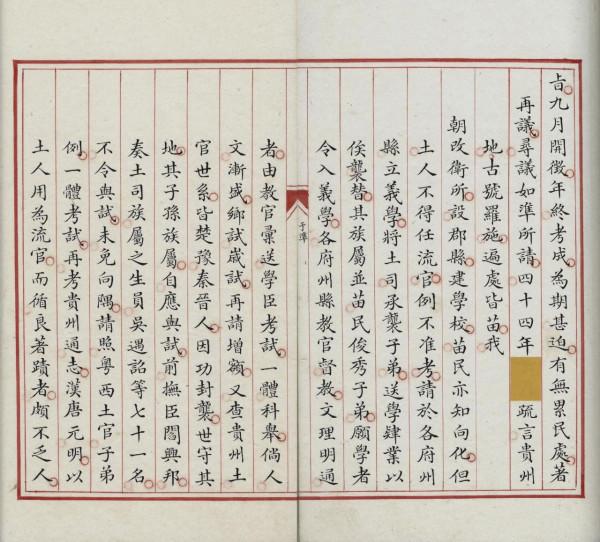 旨九月開徵年終考成為期甚迫有無累民處著
再議尋議如準所請四十四年疏言貴州
地古號羅施遍處皆苗我
朝改衛所設郡縣建學校苗民亦知向化但
土人不得任流官例不准考請於各府州
縣立義學將土司承襲子弟送學肄業以
俟襲替其族屬並苗民俊秀子弟願學者
令入義學各府州縣教官督教文理明通
于準
者由教官彙送學臣考試一體科舉倘人
文漸盛鄉試歲試再請增額又查貴州土
官世系皆楚豫秦晉人因功封襲世守其
地其子孫族屬自應與試前撫臣閻興邦
奏土司族屬之生員吳遇詔等七十一名
不令與試未免向隅請照粵西土官子弟
例一體考試再考貴州通志漢唐元明以
土人用為流官而循良著蹟者頗不乏人